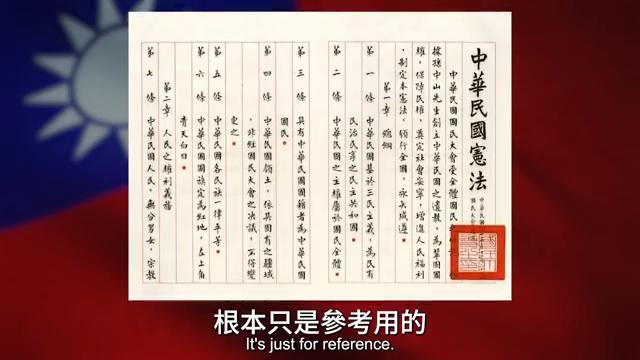 中華民國憲法
中華民國國民大會受全體國民之
據孫中山先生創立中華民國之遺教，為鞏固國
權，保障民權，奠定社會安寧，增進人民福利
，制定本憲法，頒行全國，永矢咸遵。
第一章 總綱
第一條 中華民國基於三民主義，為民有
民治民享之民主共和國。
第二條 中華民國之主權屬於國民全體。
第三條 具有中華民國國籍者為中華民國
國民。
第四條 中華民國領土，依其固有之疆域
，非經國民大會之決議，不得變
更之。
第五條 中華民國各民族一律平等。
第六條 中華民國國旗定為紅地，左上角
青天白日。
第二章 人民之權利義務
第七條 中華民國人民，無分男女，宗教
根本只是參考用的
It's just for reference.